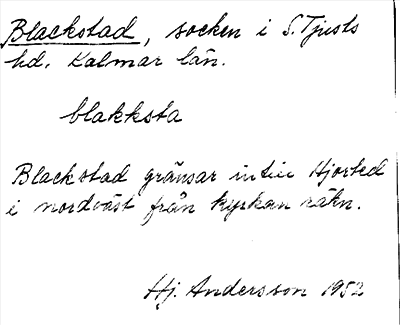 Blackstad, socken i S. Tjusts
hd. Kalmar län.
blakksta
Blackstad gränsar intill Hjorted
i nordväst från kyrkan räkn.
Hj. Andersson 1952